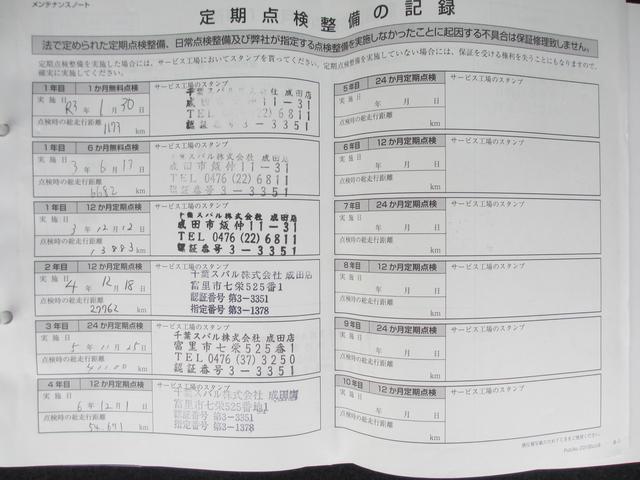 メンテナンスノート
定期点検整備の記録
法で定められた定期点検整備、日常点検整備及び弊社が指定する点検整備を実施しなかったことに起因する不具合は保証修理致しません。
定期点検整備を実施した場合には、サービス工場においてスタンプを貰ってください。定期点検整備を実施していない場合には、保証を受ける権利を失うことにもなりますので、
確実に実施してください。
1年目 1か月無料点検 サービス工場のスタンプ
実施日
R3年 1月 30日
点検時の総走行距離
1173 km
千葉スバル株式会社 成田店
成田市飯仲11-31
TEL 0476(22)6811
認証番号3-3351
1年目 6か月無料点検 サービス工場のスタンプ
実施日
3年 6月 17日
点検時の総走行距離
6682 km
千葉スバル株式会社 成田店
成田市飯仲11-31
TEL 0476(22)6811
認証番号3-3351
1年目 12か月定期点検 サービス工場のスタンプ
実施日
3年 12月 12日
点検時の総走行距離
13883 km
千葉スバル株式会社 成田店
成田市飯仲11-31
TEL 0476(22)6811
認証番号3-3351
2年目 12か月定期点検 サービス工場のスタンプ
実施日
4年 12月 18日
点検時の総走行距離
27762 km
千葉スバル株式会社 成田店
富里市七栄525番1
認証番号 第3-3351
指定番号 第3-1378
3年目 24か月定期点検 サービス工場のスタンプ
実施日
5年 11月 25日
点検時の総走行距離
km
千葉スバル株式会社 成田店
富里市七栄525番1
TEL 0476(37)3250
認証番号3-3351
4年目 12か月定期点検 サービス工場のスタンプ
実施日
6年 12月 1日
点検時の総走行距離
54,671 km
千葉スバル株式会社 成田店
富里市七栄525番地1
認証番号 第3-3351
指定番号 第3-1378
5年目 24か月定期点検 サービス工場のスタンプ
実施日
年 月 日
点検時の総走行距離
km
6年目 12か月定期点検 サービス工場のスタンプ
実施日
年 月 日
点検時の総走行距離
km
7年目 24か月定期点検 サービス工場のスタンプ
実施日
年 月 日
点検時の総走行距離
km
8年目 12か月定期点検 サービス工場のスタンプ
実施日
年 月 日
点検時の総走行距離
km
9年目 24か月定期点検 サービス工場のスタンプ
実施日
年 月 日
点検時の総走行距離
km
10年目 12か月定期点検 サービス工場のスタンプ
実施日
年 月 日
点検時の総走行距離
km